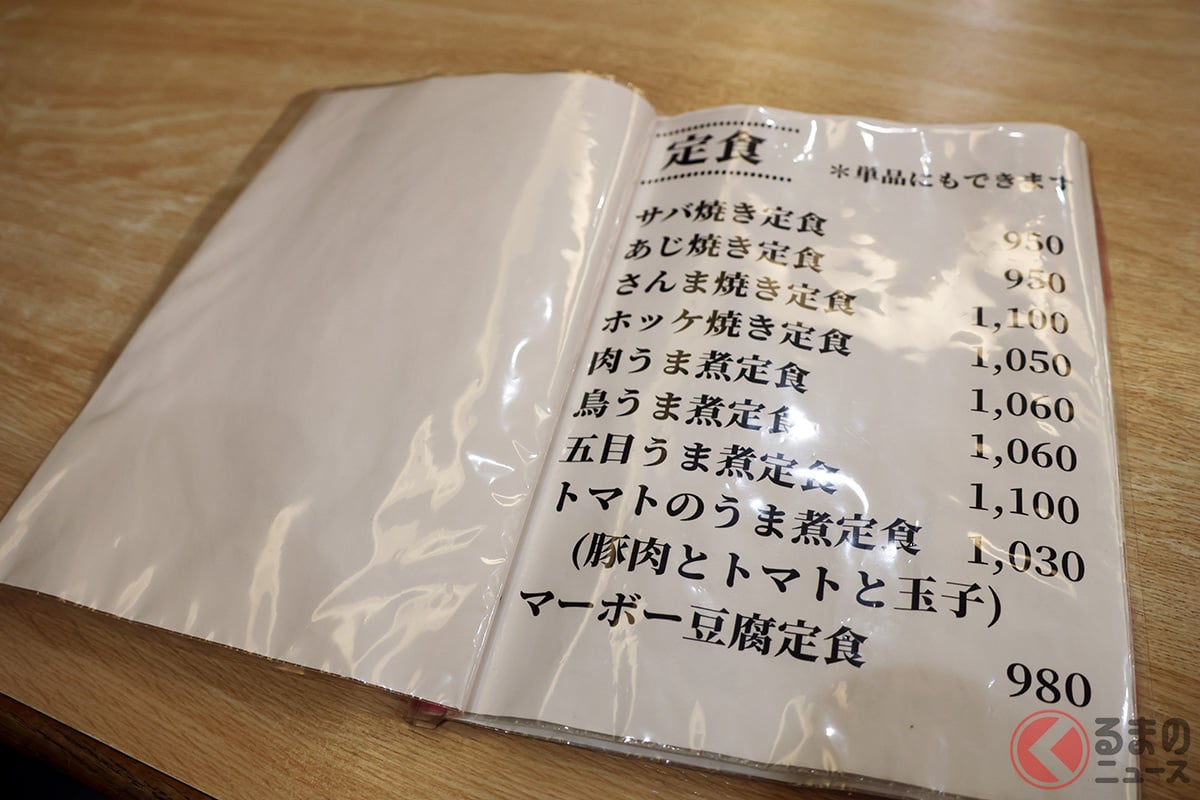 定食
*単品にもできます
サバ焼き定食 950
あじ焼き定食 950
さんま焼き定食 1,100
ホッケ焼き定食 1,050
肉うま煮定食 1,060
鳥うま煮定食 1,060
五目うま煮定食 1,100
トマトのうま煮定食 1,030
(豚肉とトマトと玉子)
マーボー豆腐定食 980
くるまの
ニュース